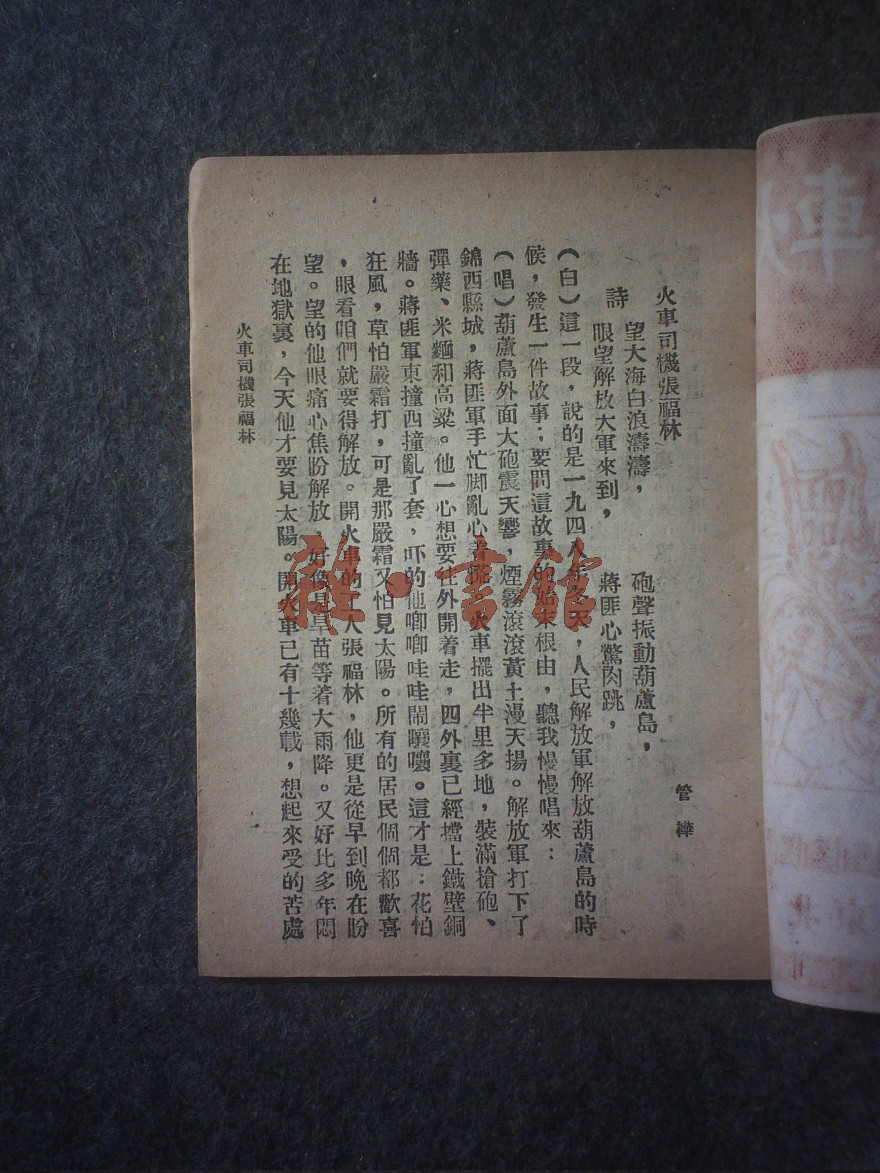 火車司機張福林
管樺
詩 望大海白浪濤濤， 砲聲振動葫蘆島，
眼望解放大軍來到， 蔣匪心驚肉跳，
（白）這一段，說的是一九四八年冬天，人民解放軍解放葫蘆島的時
候，發生一件故事；要問這故事的始末根由，聽我慢慢唱來：
（唱）葫蘆島外面大砲震天響，煙霧滾滾黃土漫天揚。解放軍打下了
錦西縣城，蔣匪軍手忙脚亂心着慌。火車擺出半里多地，裝滿槍砲、
彈藥、米麵和高粱。他一心想要往外開着走，四外裏已經擋上鐵壁銅
牆。蔣匪軍東撞西撞亂了套，吓的他唧唧哇哇鬧嚷嚷。這才是：花怕
狂風，草怕嚴霜打，可是那嚴霜又怕見太陽。所有的居民個個都歡喜
，眼看咱們就要得解放。開火車的工人張福林，他更是從早到晚在盼
望。望的他眼痛心焦盼解放，好像是旱苗等着大雨降。又好比多年悶
在地獄裏，今天他才要見太陽。開火車已有十幾載，想起來受的苦處
火車司機張福林
一
雜·書館
車
火